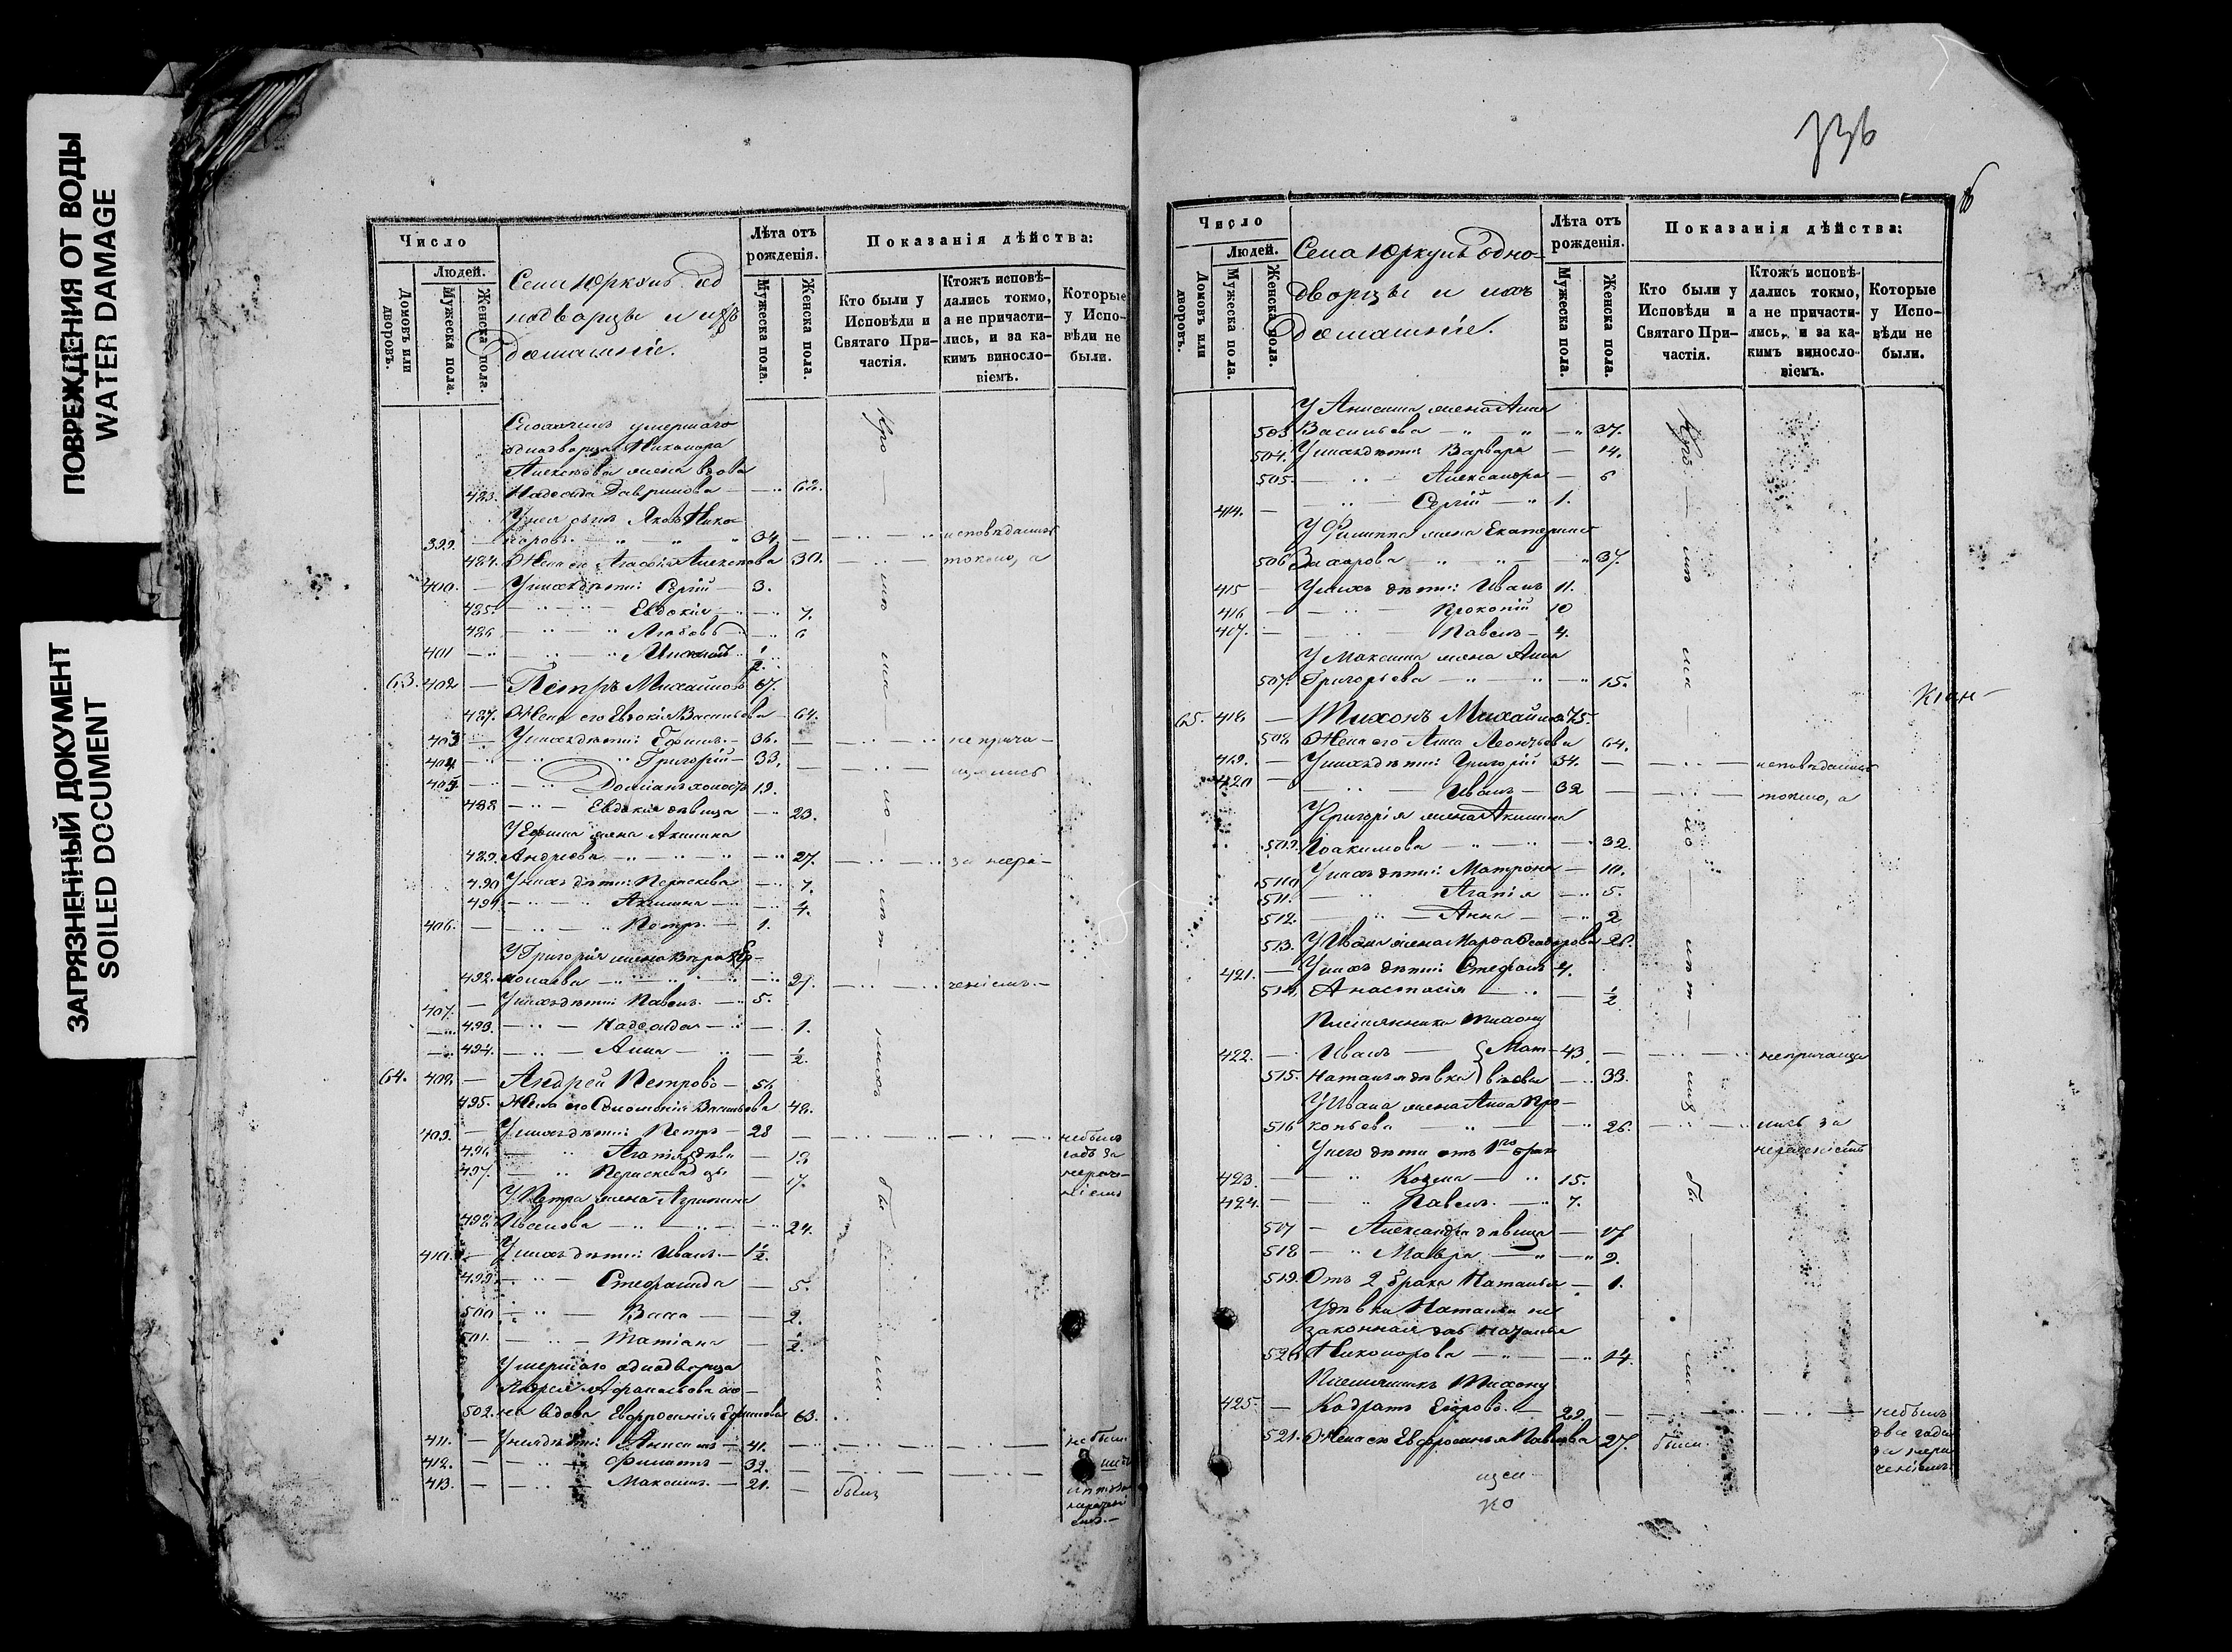 ПОВРЕЖДЕНИЯ ОТ ВОДЫ
WATER DAMAGE
ЗАГРЯЗНЕННЫЙ ДОКУМЕНТ
SOILED DOCUMENT
Число
Людей.
Домовъ или дворовъ.
Мужеска пола.
Женска пола.
Села Юркунъ од
нодворцы и ихъ
домашніе.
Лѣта отъ рожденія.
Мужеска пола.
Женска пола.
Показанія дѣйства:
Кто были у Исповѣди и Святаго При-частія.
Ктожъ исповѣ-дались токмо, а не причасти-лись, и за ка-кимъ винослο-віемъ.
Которые у Испо-вѣди не были.
умершаго
однодворца Никанора
Алексѣева жена вдова
483. Надежда Гавринова 62.
У нея сынъ Яковъ Ника-
399. норовъ 34. исповѣдались
484. Жена его Агафія Алексѣева 30. токмо, а
400. У нихъ дѣти: Сергій 3.
485. Евдокія 7.
486 Любовь 6
401 1/2.
63. 402 Петръ Михайловъ 67.
487. Жена его Евдокія Васильева 64.
403 У нихъ дѣти: Ефимъ 36. не прича-
404 Григорій 33. щались
405 Доміанъ холостъ 19.
488 Евдокія дѣвица 23.
У Ефима жена Акилина
489. Андреева 27. за нера-
490 У нихъ дѣти: Параскева 7.
491 Акилина 4.
406. Петръ 1.
У Григорія жена Вѣра Ер-
492. молаева 27. ченіемъ.
407. У нихъ дѣти: Павелъ 5.
493. Надежда 1.
494. Анна 1/2.
64. 408. Андрей Петровъ 51.
495. Жена его Соломонія Васильева 48.
409. У нихъ дѣти: Петръ 28 небылъ
496. Агапія дѣва 19 годъ за
497. Параскева дѣв 17. нерачe-
У Петра жена Агрипина ніемъ
498. Иванова 24.
410. У нихъ дѣти: Иванъ 1 1/2.
499. Стефанида 5.
500 Васса 2.
501. Татіана 1/2.
Умершаго однодворца
Андрея Афанасьева же-
502. на вдова Евфросинія Ефимова 63.
411. У нея дѣти: Анисимъ 41. не были
412. Филиппъ 32.
413. Максимъ 21. былъ
736
Число
Людей.
Домовъ или дворовъ.
Мужеска пола.
Женска пола.
Села Юркунъ одно-
дворцы и ихъ
домашніе.
Лѣта отъ рожденія.
Мужеска пола.
Женска пола.
Показанія дѣйства:
Кто были у Исповѣди и Святаго При-частія.
Ктожъ исповѣ-дались токмо, а не причасти-лись, и за ка-кимъ винослο-віемъ.
Которые у Испо-вѣди не были.
У Анисима жена Анна
503. Васильева 37.
504. У нихъ дѣти: Варвара 14.
505. Александра 6
414. Сергій 1.
У Филиппа жена Екатерина
506 Захарова 37.
415 У нихъ дѣти: Иванъ 11.
416 Прокопій 10
417. Павелъ 4.
У Максима жена Анна
507. Григорьева 15.
65. 418. Тихонъ Михайловъ 75.
508. Жена его Анна Леонтьева 64.
419. У нихъ дѣти: Григорій 34. исповѣдались
420 Иванъ 32 токмо, а
У Григорія жена Акилина
509. Іоакимова 32.
510 У нихъ дѣти: Матрона 10.
511. Агапія 5.
512. Анна 2
513. У Ивана жена Марфа Федорова 26.
421. У нихъ дѣти: Стефанъ 4.
514. Анастасія 1/2
Племянники Тихону
422. Иванъ Мат- 43 непричаща
515. Наталья дѣвка вѣевы 33.
У Ивана жена Анна Про-
516 копьева 26. лись за
У него дѣти отъ 1го брака
423. Козма 15.
424. Павелъ 7.
517 Александра дѣвица 17
518 Мавра 9.
519. Отъ 2 брака Наталья 1.
У дѣвки Натальи не
законная
520 Никонорова 14.
Племянникъ Тихону
425. Кодратъ Егоровъ 29. небылъ
521. Жена его Евфросинья Павлова 27. была. два года
за нера
ченіемъ